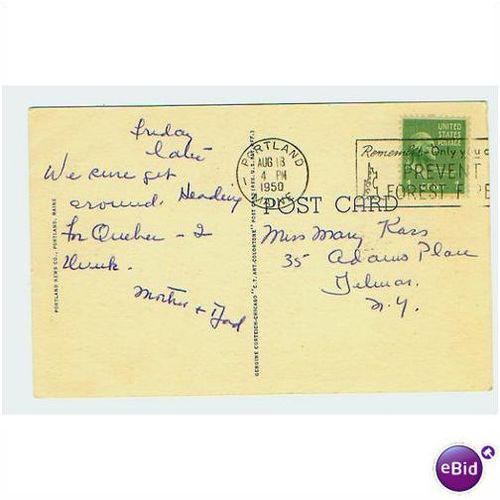 Friday
Late
We sure get
around. Heading
for Quebec - I
think.
Mother + Dad
PORTLAND
AUG 18
4 PM
1950
MAINE
Remember Only you
PREVENT
FOREST FIRE
UNITED
STATES
POSTAGE
POST CARD
Miss Mary Kass
35 Adams Place
Delmar
N.Y.
PORTLAND NEWS CO., PORTLAND, MAINE
GENUINE CURTEICH-CHICAGO "C.T. ART-COLORTONE" POST CARD
eBid